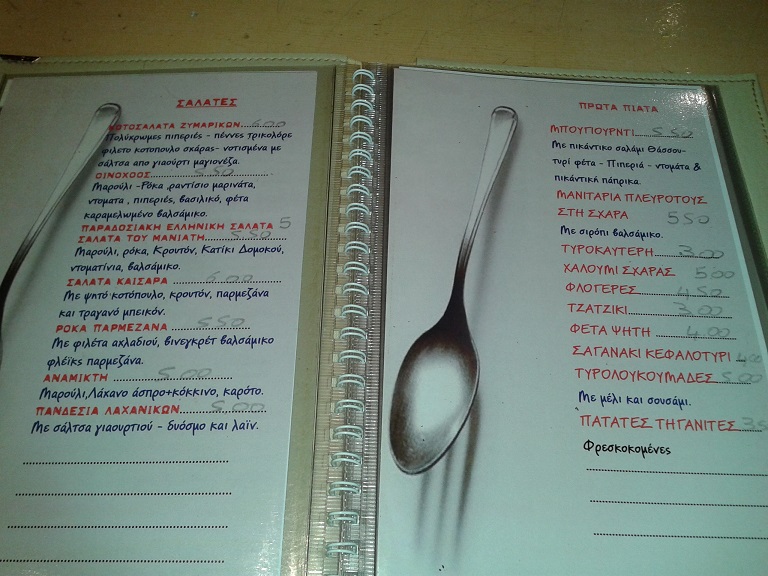 ΣΑΛΑΤΕΣ
ΚΟΤΟΣΑΛΑΤΑ ΖΥΜΑΡΙΚΩΝ.....6.00
Πολύχρωμες πιπεριές - πέννες τρικολόρε
φιλετο κοτοπουλο σχάρας- νοτισμένα με
σάλτσα απο γιαούρτι μαγιονέζα.
ΟΙΝΟΧΟΟΣ.....5.50
Μαρούλι -Ρόκα ,ραντίσιο μαρινάτα,
ντοματα , πιπεριές, βασιλικό, φέτα
καραμελωμένο βαλσάμικο.
ΠΑΡΑΔΟΣΙΑΚΗ ΕΛΛΗΝΙΚΗ ΣΑΛΑΤΑ 5
ΣΑΛΑΤΑ ΤΟΥ ΜΑΝΙΑΤΗ.....5.50
Μαρούλι, ρόκα, Κρουτόν, Κατίκι Δομοκού,
ντοματίνια, βαλσάμικο.
ΣΑΛΑΤΑ ΚΑΙΣΑΡΑ .....6.00
Με ψητό κοτόπουλο, κρουτόν, παρμεζάνα
και τραγανό μπεικόν.
ΡΟΚΑ ΠΑΡΜΕΖΑΝΑ .....5.50
Με φιλέτα αχλαδιού, βινεγκρέτ βαλσάμικο
φλέϊκς παρμεζάνα.
ΑΝΑΜΙΚΤΗ .....5.00
Μαρούλι,Λάχανο άσπρο+κόκκινο, καρότο.
ΠΑΝΔΕΣΙΑ ΛΑΧΑΝΙΚΩΝ.....5.00
Με σάλτσα γιαουρτιού - δυόσμο και λαϊν.
ΠΡΩΤΑ ΠΙΑΤΑ
ΜΠΟΥΓΙΟΥΡΝΤΙ.....5.50
Με πικάντικο σαλάμι Θάσσου-
τυρί φέτα - Πιπεριά - ντομάτα &
πικάντική πάπρικα.
ΜΑΝΙΤΑΡΙΑ ΠΛΕΥΡΟΤΟΥΣ
ΣΤΗ ΣΧΑΡΑ 550
Με σιρόπι βαλσάμικο.
ΤΥΡΟΚΑΥΤΕΡΗ.....3.00
ΧΑΛΟΥΜΙ ΣΧΑΡΑΣ 500
ΦΛΟΓΕΡΕΣ .....4.50
ΤΖΑΤΖΙΚΙ.....3.00
ΦΕΤΑ ΨΗΤΗ .....4.00
ΣΑΓΑΝΑΚΙ ΚΕΦΑΛΟΤΥΡΙ 400
ΤΥΡΟΛΟΥΚΟΥΜΑΔΕΣ.....5.00
Με μέλι και σουσάμι.
ΠΑΤΑΤΕΣ ΤΗΓΑΝΙΤΕΣ.....3.5
Φρεσκοκομένες